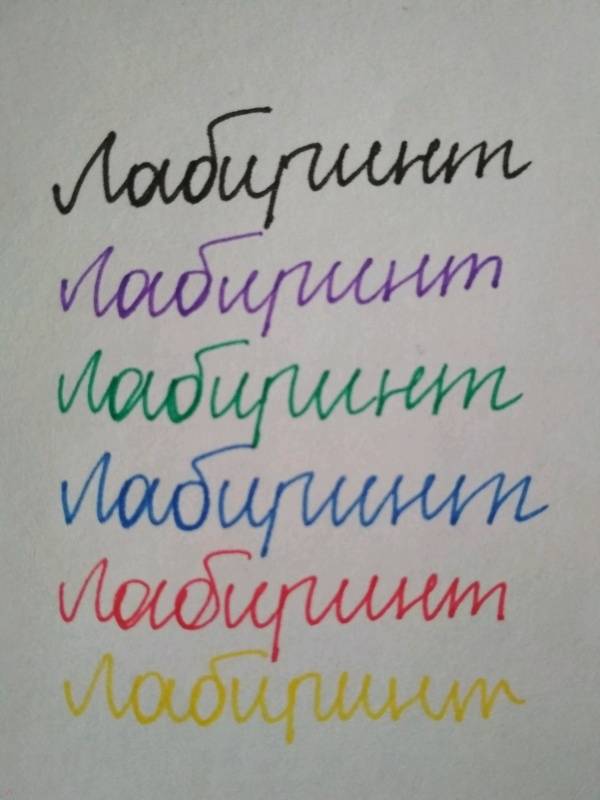 Лабиринт
Лабиринт
Лабиринт
Лабиринт
Лабиринт
Лабиринт